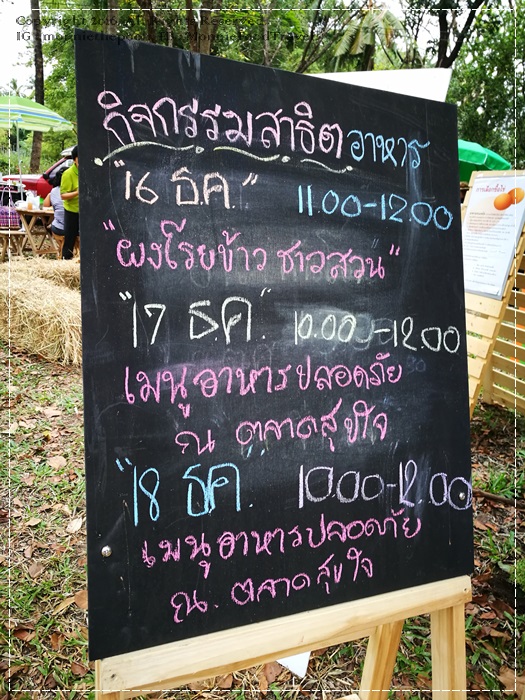 กิจกรรมสาธิต อาหาร
"16 ธ.ค." 11.00-12.00
"ผงโรยข้าว ชาวสวน"
"17 ธ.ค." 10.00-12.00
เมนูอาหารปลอดภัย
ณ ตลาดสุขใจ
"18 ธ.ค. 10.00-12.00
เมนูอาหารปลอดภัย
ณ. ตลาดสุขใจ